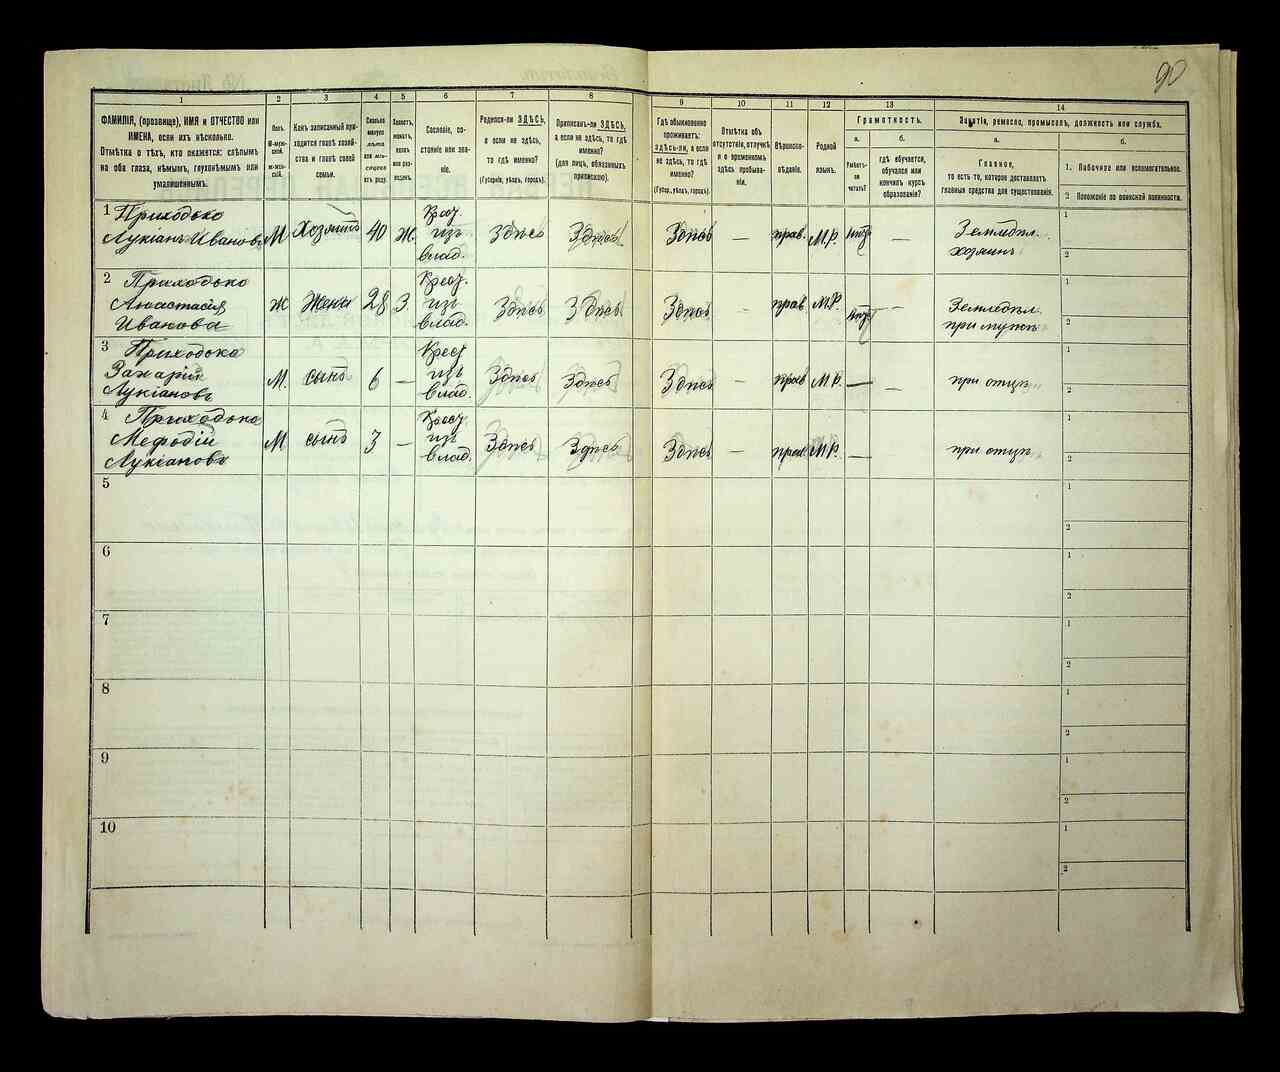 90
1 2 3 4 5 6 7 8 9 10 11 12 13 14
ФАМИЛІЯ, (прозвище), ИМЯ и ОТЧЕСТВО или
ИМЕНА, если ихъ нѣсколько.
Отмѣтка о тѣхъ, кто окажется: слѣпымъ
на оба глаза, нѣмымъ, глухонѣмымъ или
умалишённымъ.
Полъ.
М-муж-
ской.
Ж-жен-
скій.
Какъ записанный при-
ходится главѣ хозяй-
ства и главѣ своей
семьи.
Сколько
минуло
лѣтъ
или мѣ-
сяцевъ
отъ роду.
Холостъ,
женатъ,
вдовъ
или раз-
веденъ.
Сословіе, со-
стояніе или зва-
ніе.
Родился-ли ЗДѢСЬ,
а если не здѣсь,
то гдѣ именно?
(Губернія, уѣздъ, городъ).
Приписанъ-ли ЗДѢСЬ,
а если не здѣсь, то гдѣ
именно?
(для лицъ, обязанныхъ
припискою).
Гдѣ обыкновенно
проживаетъ:
здѣсь-ли, а если
не здѣсь, то гдѣ
именно?
(Губер., уѣздъ, городъ).
Отмѣтка объ
отсутствіи, отлучкѣ
и о временномъ
здѣсь пребыва-
ніи.
Вѣроиспо-
вѣданіе.
Родной
языкъ.
Грамотность.
а.
Умѣетъ-
ли
читать?
б.
гдѣ обучается,
обучался или
кончилъ курсъ
образованія?
Занятія, ремесло, промыселъ, должность или служба.
а.
Главное,
то есть то, которое доставляетъ
главныя средства для существованія.
б.
1. Побочное или вспомогательное.
2 Положеніе по воинской повинности.
1 Приходько
Лукіанъ Ивановъ М Хозяинъ 40 Ж. Крест. изъ влад. Здѣсь Здѣсь Здѣсь — прав. М.Р. нѣтъ — Земледѣл. хозяинъ 1 2
2 Приходько
Анастасія
Иванова Ж Жена 28 З. Крест. изъ влад. Здѣсь Здѣсь Здѣсь — прав М.Р. нѣтъ — Земледѣл. при мужѣ 1 2
3 Приходько
Захарій
Лукіановъ М. сынъ 6 — Крест изъ влад. Здѣсь Здѣсь Здѣсь — прав М.Р. — — при отцѣ 1 2
4 Приходько
Мефодій
Лукіановъ М сынъ 3 — Крест. изъ влад. Здѣсь Здѣсь Здѣсь — прав. М.Р. — при отцѣ 1 2
5 1
2
6 1
2
7 1
2
8 1
2
9 1
2
10 1
2